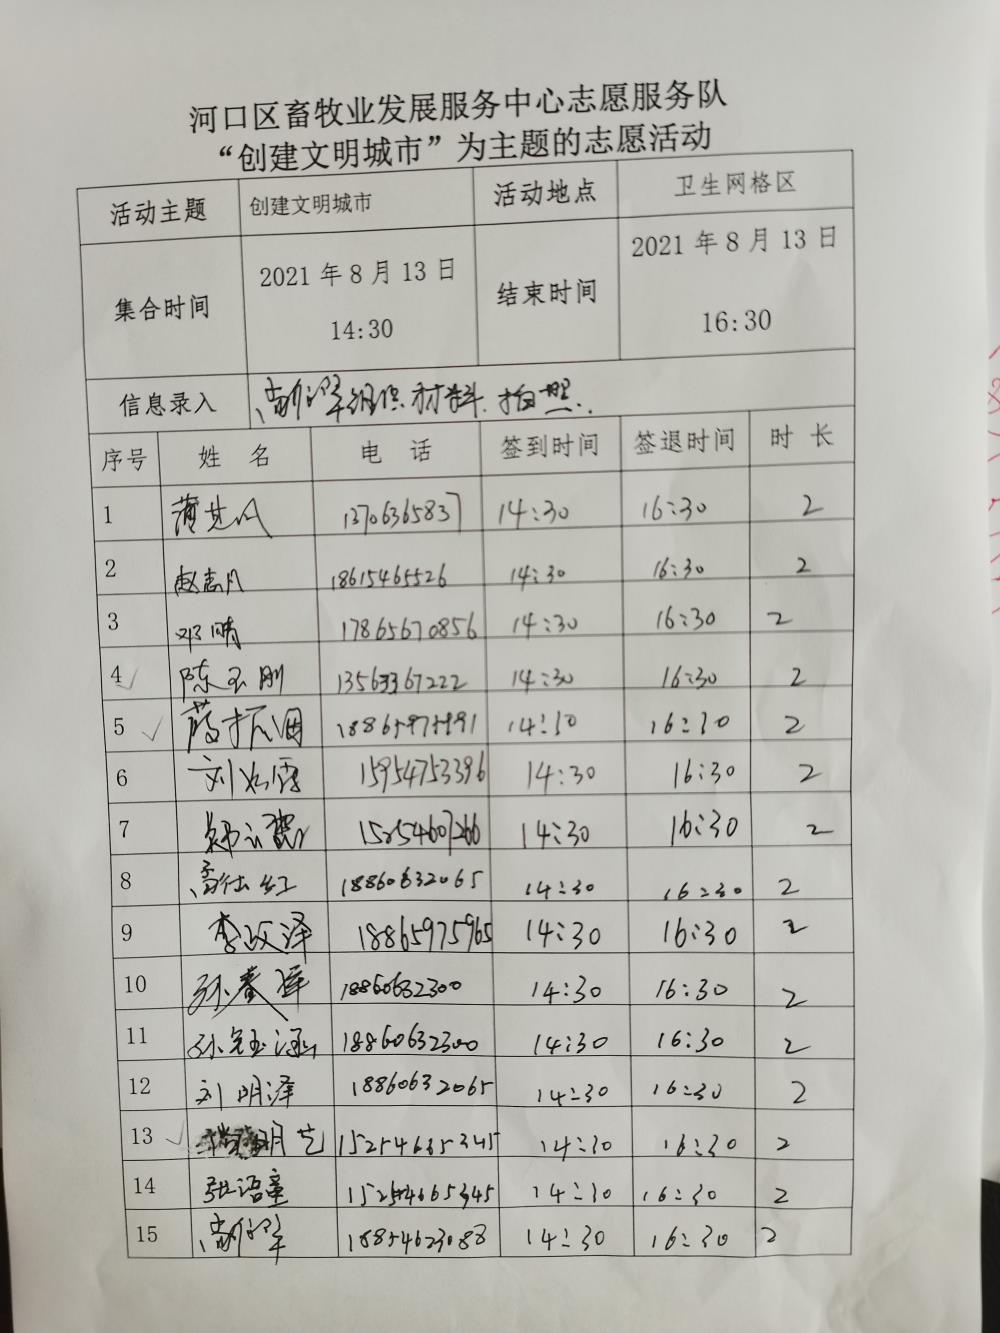 河口区畜牧业发展服务中心志愿服务队
“创建文明城市”为主题的志愿活动
活动主题 创建文明城市 活动地点 卫生网格区
集合时间 2021 年 8 月 13 日 14:30 结束时间 2021 年 8 月 13 日 16:30
信息录入 组织材料、拍照.
序号 姓 名 电 话 签到时间 签退时间 时 长
1 13706365837 14:30 16:30 2
2 赵志凡 18615465526 14:30 16:30 2
3 邓晴 17865670856 14:30 16:30 2
4 陈玉刚 13563367222 14:30 16:30 2
5 14:30 16:30 2
6 刘 15954753396 14:30 16:30 2
7 15254607266 14:30 16:30 2
8 18860632065 14:30 16:30 2
9 李政泽 18865975965 14:30 16:30 2
10 孙春晖 18860632300 14:30 16:30 2
11 孙 18860632300 14:30 16:30 2
12 刘明泽 18860632065 14:30 16:30 2
13 明艺 15254665345 14:30 16:30 2
14 张语童 15254665345 14:30 16:30 2
15 18854623088 14:30 16:30 2